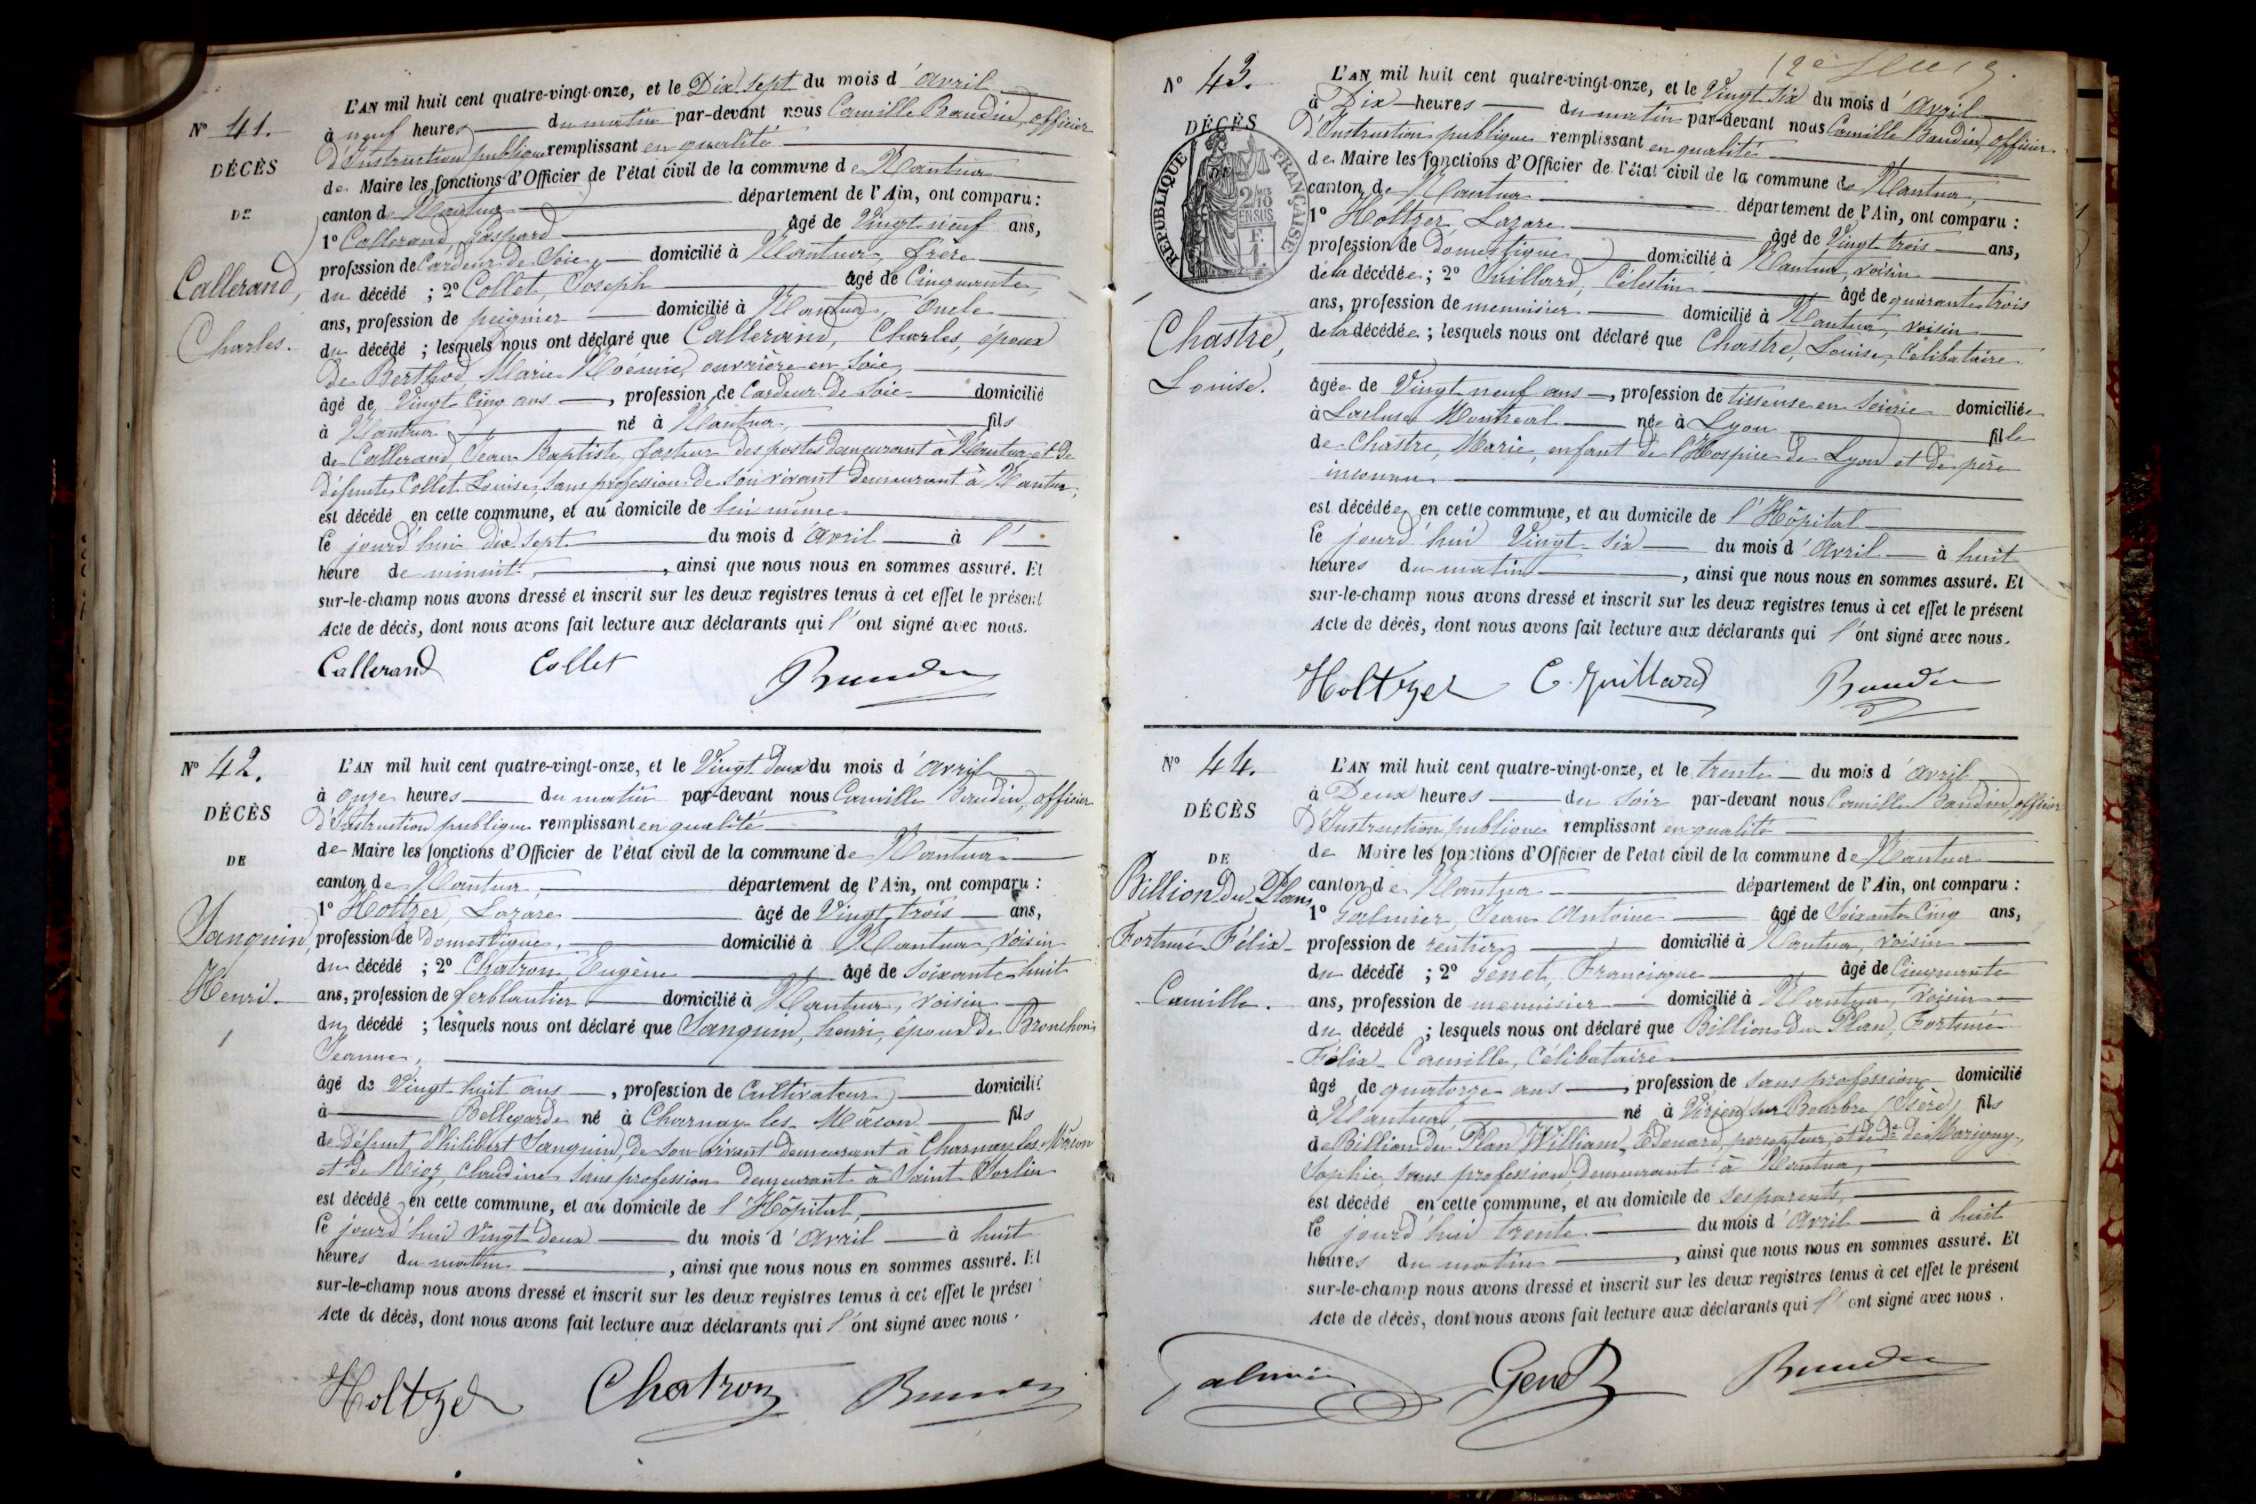 N° 41.
DÉCÈS
DE
Callerand,
Charles.
L'AN mil huit cent quatre-vingt-onze, et le Dix sept du mois d'avril
à neuf heures du matin par-devant nous Camille Baudin, officier
d'Instruction publique remplissant en qualité
de Maire les fonctions d'Officier de l'état civil de la commune de Nantua
canton de Nantua département de l'Ain, ont comparu :
1° Callerand, Gaspard âgé de Vingt neuf ans,
profession de Cardeur de Soie, domicilié à Nantua, frère
du décédé ; 2° Collet, Joseph âgé de Cinquante
ans, profession de peignier domicilié à Nantua, Oncle
du décédé ; lesquels nous ont déclaré que Callerand, Charles, époux
de Berthod, Marie Noémie, ouvrière en soie,
âgé de Vingt Cinq ans, profession de Cardeur de Soie domicilié
à Nantua né à Nantua, fils
de Callerand, Jean Baptiste, facteur des postes demeurant à Nantua et de
défunte Collet Louise, sans profession de son vivant demeurant à Nantua,
est décédé en cette commune, et au domicile de lui même
le jourd'hui dix sept du mois d'avril à l'
heure de minuit, ainsi que nous nous en sommes assuré. Et
sur-le-champ nous avons dressé et inscrit sur les deux registres tenus à cet effet le présent
Acte de décès, dont nous avons fait lecture aux déclarants qui l'ont signé avec nous.
Callerand Collet Baudin
N° 42.
DÉCÈS
DE
Sanguin,
Henri.
L'AN mil huit cent quatre-vingt-onze, et le Vingt deux du mois d'avril
à onze heures du matin par-devant nous Camille Baudin, officier
d'Instruction publique remplissant en qualité
de Maire les fonctions d'Officier de l'état civil de la commune de Nantua
canton de Nantua département de l'Ain, ont comparu :
1° Holtzer, Lazare âgé de Vingt trois ans,
profession de Domestique, domicilié à Nantua, voisin
du décédé ; 2° Chatron, Eugène âgé de soixante huit
ans, profession de ferblantier domicilié à Nantua, voisin
du décédé ; lesquels nous ont déclaré que Sanguin, henri, époux de Bronchon
Jeanne,
âgé de Vingt huit ans, profession de Cultivateur domicilié
à Bellegarde né à Charnay les Mâcon fils
de défunt Philibert Sanguin, de son vivant demeurant à Charnay les Mâcon
et de Claudine sans profession demeurant à Saint Sorlin
est décédé en cette commune, et au domicile de l'Hôpital,
le jourd'hui vingt deux du mois d'avril à huit
heures du matin, ainsi que nous nous en sommes assuré. Et
sur-le-champ nous avons dressé et inscrit sur les deux registres tenus à cet effet le présent
Acte de décès, dont nous avons fait lecture aux déclarants qui l'ont signé avec nous.
Holtzer Chatron Baudin
N° 43.
DÉCÈS
RÉPUBLIQUE FRANÇAISE
2/10 EN SUS
Chastre,
Louise.
L'AN mil huit cent quatre-vingt-onze, et le Vingt six du mois d'avril
à Dix heures du matin par-devant nous Camille Baudin, officier
d'Instruction publique remplissant en qualité
de Maire les fonctions d'Officier de l'état civil de la commune de Nantua,
canton de Nantua département de l'Ain, ont comparu :
1° Holtzer, Lazare âgé de Vingt trois ans,
profession de domestique domicilié à Nantua, voisin
de la décédée ; 2° Juillard, Célestin âgé de quarante trois
ans, profession de menuisier domicilié à Nantua, voisin
de la décédée ; lesquels nous ont déclaré que Chastre, Louise, Célibataire
âgée de Vingt neuf ans, profession de tisseuse en soierie domiciliée
à Lacluse Montréal née à Lyon fille
de Chastre, Marie, enfant de l'Hospice de Lyon et de père
inconnu
est décédée en cette commune, et au domicile de l'Hôpital
le jourd'hui Vingt six du mois d'avril à huit
heures du matin, ainsi que nous nous en sommes assuré. Et
sur-le-champ nous avons dressé et inscrit sur les deux registres tenus à cet effet le présent
Acte de décès, dont nous avons fait lecture aux déclarants qui l'ont signé avec nous.
Holtzer C. Juillard Baudin
N° 44.
DÉCÈS
DE
Billion du Plan,
Fortuné Félix
Camille.
L'AN mil huit cent quatre-vingt-onze, et le trente du mois d'avril
à Deux heures du soir par-devant nous Camille Baudin, officier
d'Instruction publique remplissant en qualité
de Maire les fonctions d'Officier de l'état civil de la commune de Nantua
canton de Nantua département de l'Ain, ont comparu :
1° Palmier, Jean Antoine âgé de Soixante Cinq ans,
profession de rentier domicilié à Nantua, voisin
du décédé ; 2° Genet, Francisque âgé de Cinquante
ans, profession de menuisier domicilié à Nantua, voisin
du décédé ; lesquels nous ont déclaré que Billion du Plan, Fortuné
Félix Camille, Célibataire
âgé de quatorze ans, profession de sans profession domicilié
à Nantua, né à Virieu sur Bourbre (Isère) fils
de Billion du Plan William Edouard, percepteur, et de De de Marigny,
Sophie, sans profession demeurant à Nantua,
est décédé en cette commune, et au domicile de ses parents,
le jourd'hui trente du mois d'avril à huit
heures du matin, ainsi que nous nous en sommes assuré. Et
sur-le-champ nous avons dressé et inscrit sur les deux registres tenus à cet effet le présent
Acte de décès, dont nous avons fait lecture aux déclarants qui l'ont signé avec nous.
Palmier Genet Baudin